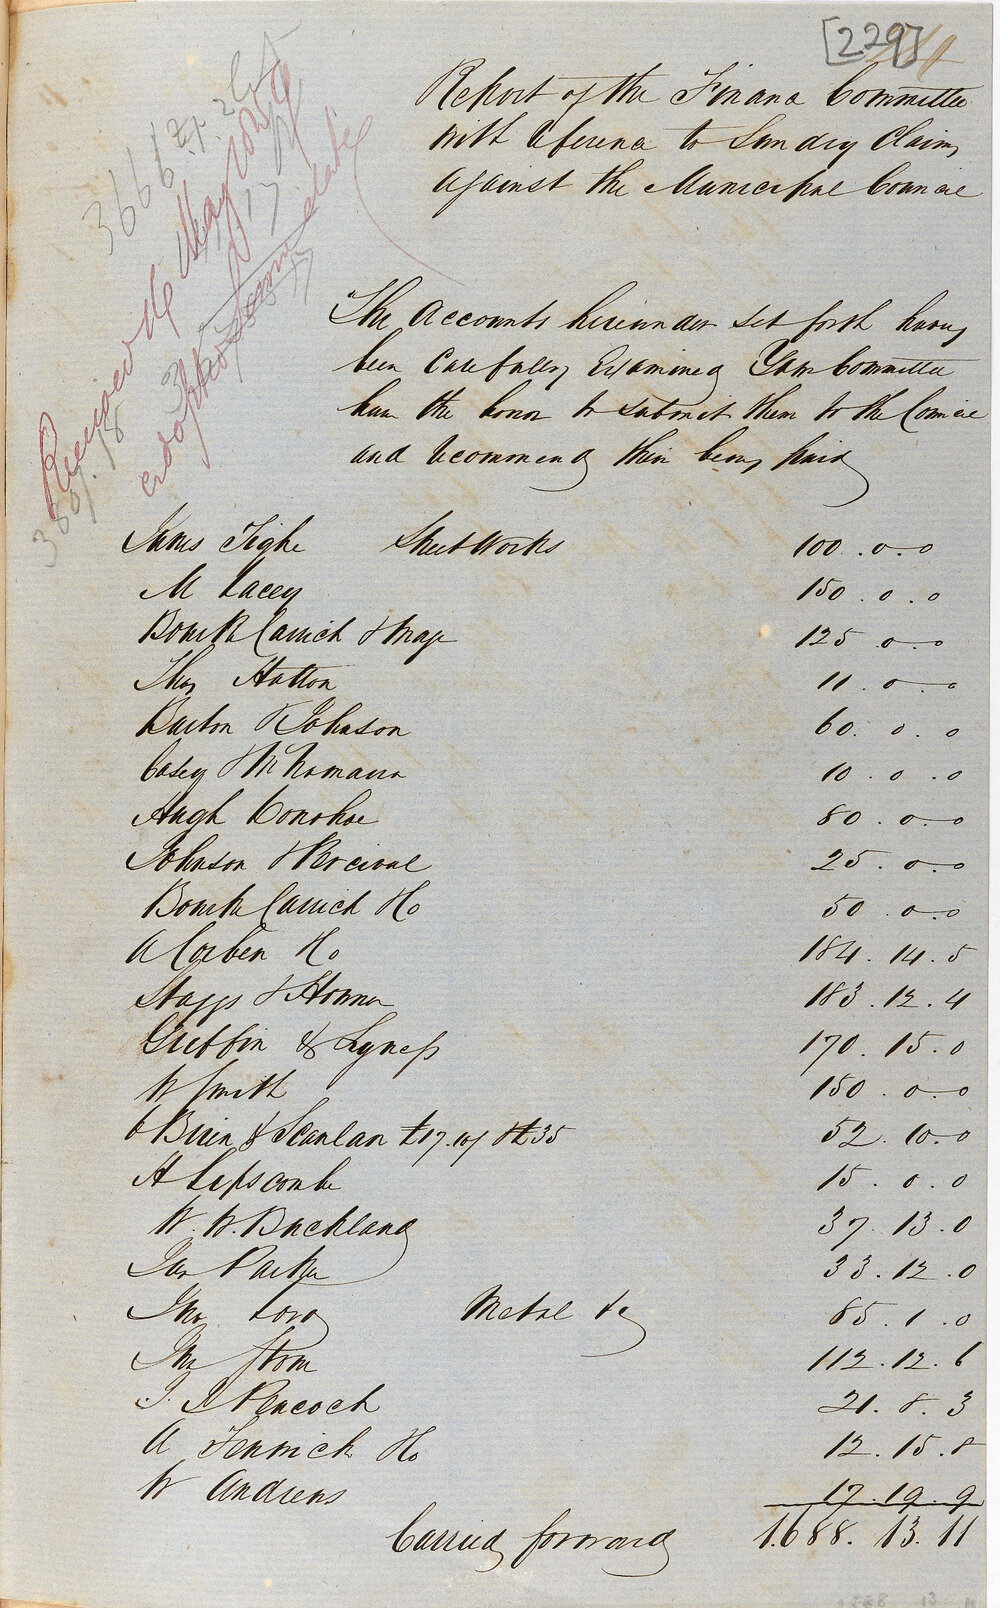 [229]
Report of the Finance Committee
with reference to Sundry Claims
against the Municipal Council
3666
Received 14 May
17
adopted same date
The Accounts hereunder set forth having
been Carefully Examined Your Committee
have the honor to submit them to the Council
and recommend their being paid
James Tighe Street Works 100.0.0
M Lacey 150.0.0
Bourke Carrick & Mage 125.0.0
Thos Hatton 11.0.0
Burton & Johnson 60.0.0
Casey & McNamara 10.0.0
Hugh Donohoe 80.0.0
Johnson & Percival 25.0.0
Bourke Carrick Ho 50.0.0
A Corben Ho 184.14.5
Staggs & Honner 183.12.4
Griffin & Lyness 170.15.0
W Smith 150.0.0
O Brien & Scanlan £17.10/ & £35 52.10.0
H Lipscombe 15.0.0
W. W. Buckland 37.13.0
Jas Parker 33.12.0
Jno Lord Metal &c 85.1.0
Jno Strom 112.12.6
J. J Peacock 21.8.3
A Fenwick Ho 12.15.8
W Andrews 17.19.9
Carried forward 1.688.13.11